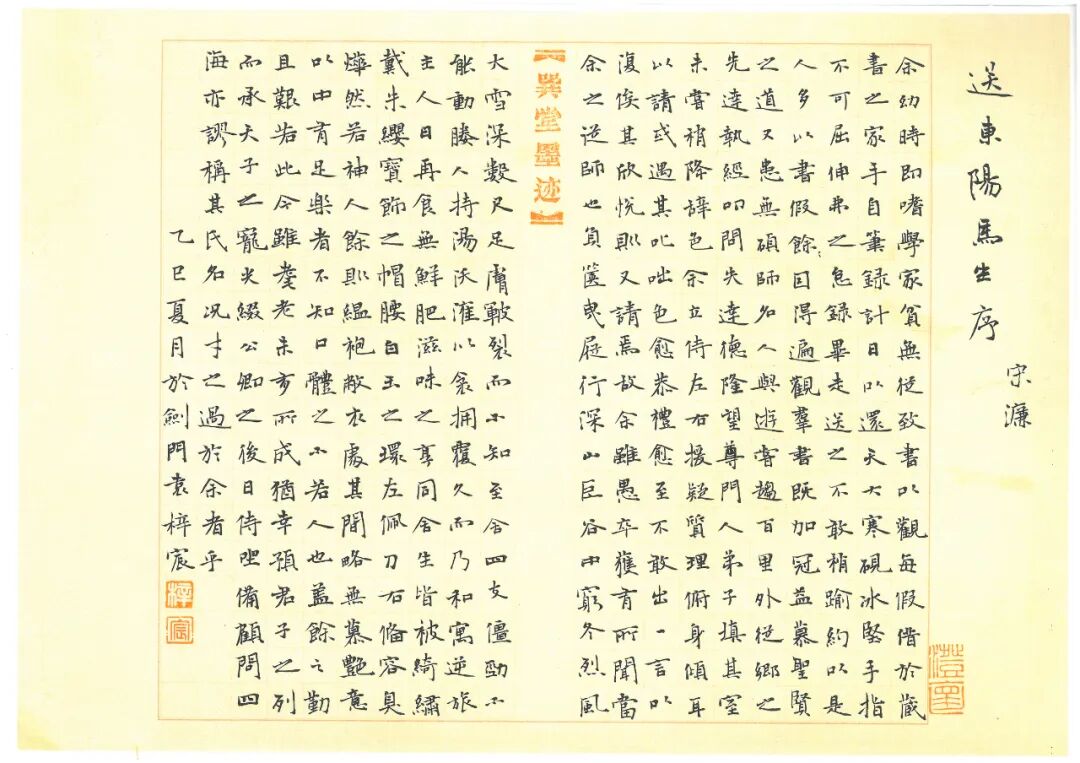 送東陽馬生序
宋濂
余幼時即嗜學家貧無從致書以觀每假借於藏
書之家手自筆録計日以還天大寒硯冰堅手指
不可屈伸弗之怠録畢走送之不敢稍踰約以是
人多以書假餘因得遍觀羣書既加冠益慕聖賢
之道又患無碩師名人與遊嘗趨百里外從鄉之
先達執經叩問先達德隆望尊門人弟子填其室
未嘗稍降辭色余立侍左右援疑質理俯身傾耳
以請或遇其叱咄色愈恭禮愈至不敢出一言以
復俟其欣悅則又請焉故余雖愚卒獲有所聞當
余之從師也負篋曳屣行深山巨谷中窮冬烈風
【巽堂墨迹】
大雪深數尺足膚皸裂而不知至舍四支僵勁不
能動媵人持湯沃灌以衾拥覆久而乃和寓逆旅
主人日再食無鮮肥滋味之享同舍生皆被綺繡
戴朱纓寶飾之帽腰白玉之環左佩刀右備容臭
燁然若神人餘則緼袍敝衣處其間略無慕艷意
以中有足樂者不知口體之不若人也蓋餘之勤
且艱若此今雖耄老未有所成猶幸預君子之列
而承天子之寵光綴公卿之後日侍坐備顧問四
海亦謬稱其氏名况才之過於余者乎
乙巳夏月於劍門袁梓宸
梓
宸